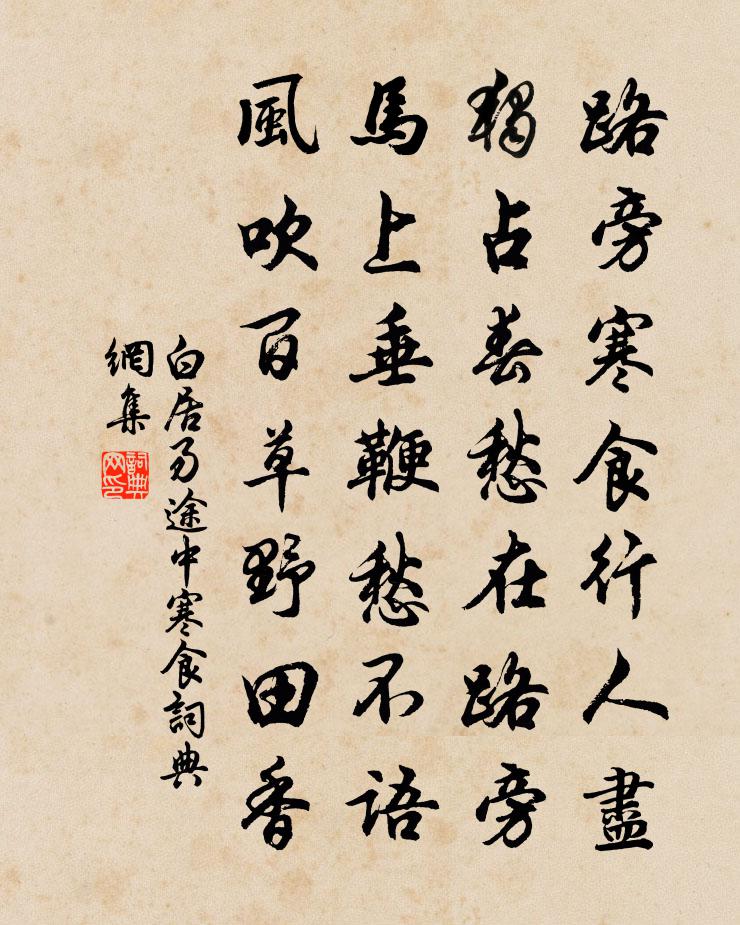 路旁寒食行人盡
獨占春愁在路旁
馬上垂鞭愁不語
風吹百草野田香
白居易途中寒食詞典
網集
詞典
网印